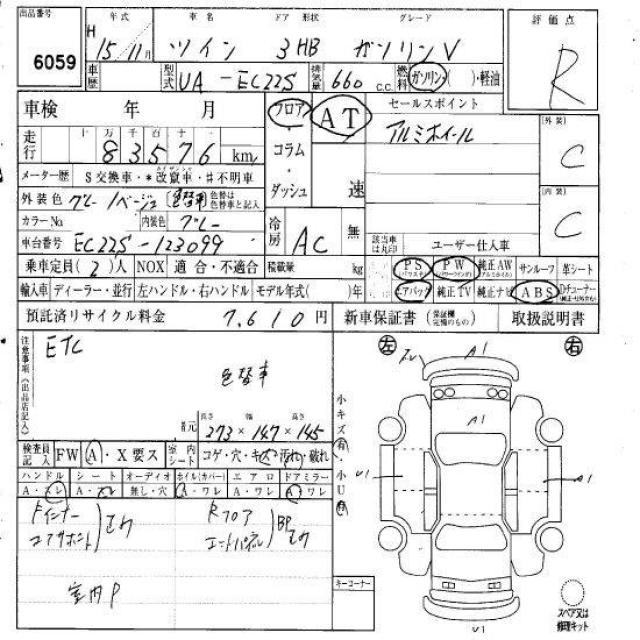 出品番号 年式 車名 ドア 形状 グレード 評価点
6059 H 15年 11月 ツイン 3 HB ガソリンV R
車歴 型式 UA-EC22S 排気量 660 c.c. 燃料 ガソリン・( )・軽油
車検 年 月 フロア・コラム・ダッシュ AT 速 セールスポイント
アルミホイール
走行 十万千百十一
83576 km
外装 C
メーター歴 S交換車・*改竄車・#不明車
内装 C
外装色 グレー/ベージュ (色替車) 色替は色替車と記入
カラーNo 内装色 グレー
冷房 AC 無
車台番号 EC22S-123099
該当車は丸印 ユーザー仕入車
乗車定員(2)人 NOX 適合・不適合 積載量 kg PS (パワステ) PW (パワーウインド) 純正AW サンルーフ 革シート
輸入車 ディーラー・並行 左ハンドル・右ハンドル モデル年式( )年 エアバッグ 純正TV 純正ナビ ABS
預託済リサイクル料金 7,610円 新車保証書 (保証欄完備のもの) 取扱説明書
注意事項(出品店記入)
ETC
色替車
長さ 幅 高さ
273×147×145
左 右
小キズ有 小U有
検査員記入 FW A・X要ス 室内シート コゲ・穴・キズ・汚れ・破れ
ハンドル シート オーディオ ホイル(カバー) エアロ ドアミラー
A・スレ A・スレ 無し・穴 A・ワレ A・ワレ A・ワレ
Fインナー
コアサポート
エク
Rフロア
エンドパネル
BP
エク
室内P
キーコーナー
A1
A1
U1
A1
U1
スペア又は修理キット